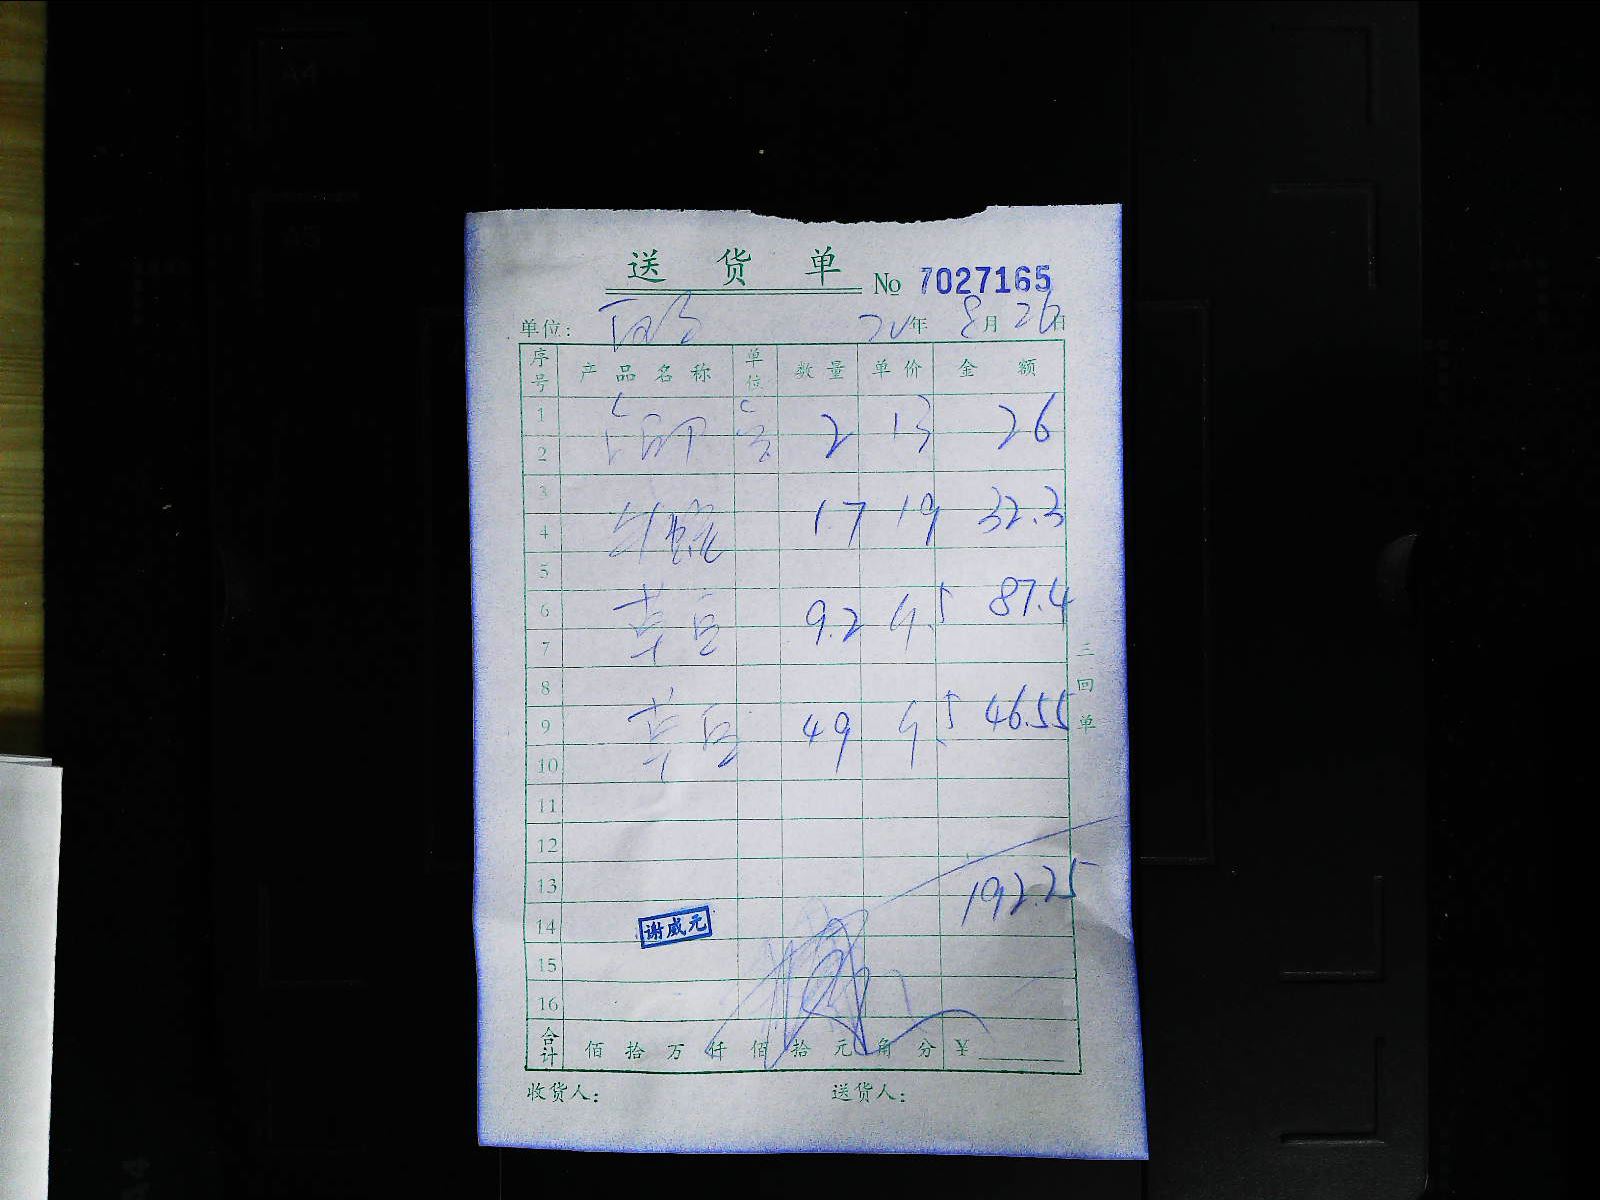 送货单 No 7027165
单位: 年 8月26日
序号 产品名称 单位 数量 单价 金额
1
2 2 13 26
3
4 1.7 19 32.3
5
6 草豆 9.2 9.5 87.4
7
8
9 草豆 49 9.5 46.55
10
11
12
13 192.25
14 谢威元
15
16
合计 佰拾万仟佰拾元角分 ¥
收货人: 送货人:
三回单